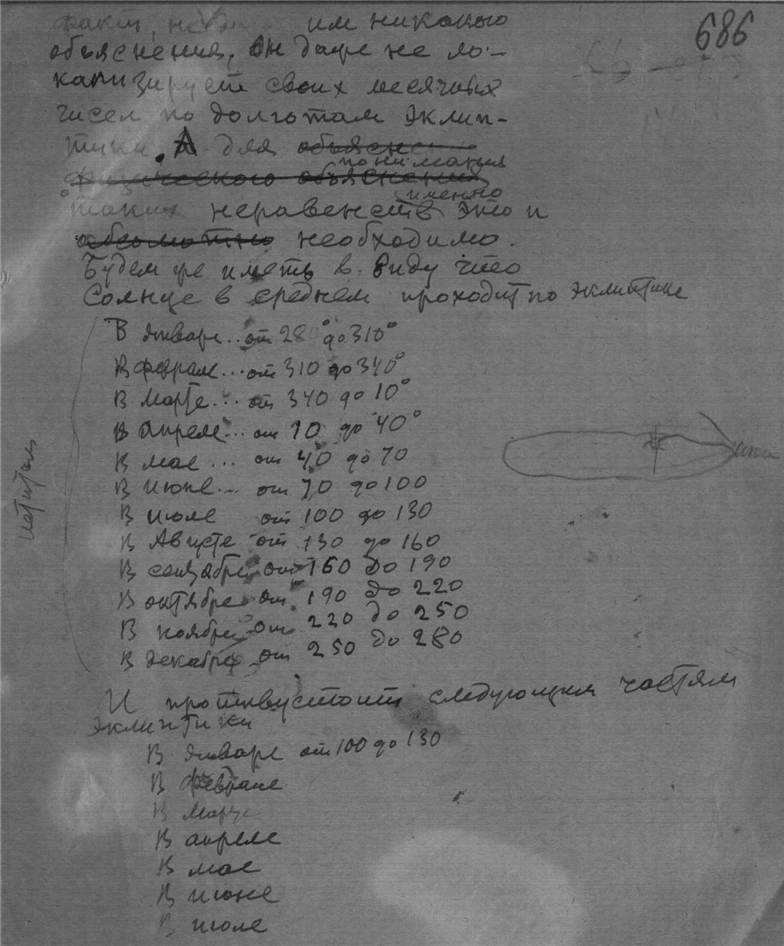 686
факт, не им никакого
объяснения, Он даже не ло-
кализирует своих месячных
чисел по долготам эклип-
тики. А для объяснения
понимания
физического объяснения
именно
таких неравенств это и
абсолютно необходимо.
Будем же иметь в виду что
Солнце в среднем проходит по эклиптике
В январе... от 28 ° до 310°
В феврале... от 310 до 340°
В марте... от 340 до 10°
В апреле... от 10 до 40°
В мае ... от 40 до 70
В июне... от 70 до 100
В июле от 100 до 130
В Августе от 130 до 160
В сентябре от 160 до 190
В октябре от 190 до 220
В ноябре от 220 до 250
В декабре от 250 до 280
И противустоит следующим частям
эклиптики
В январе от 100 до 130
В феврале
В марте
В апреле
В мае
В июне
В июле